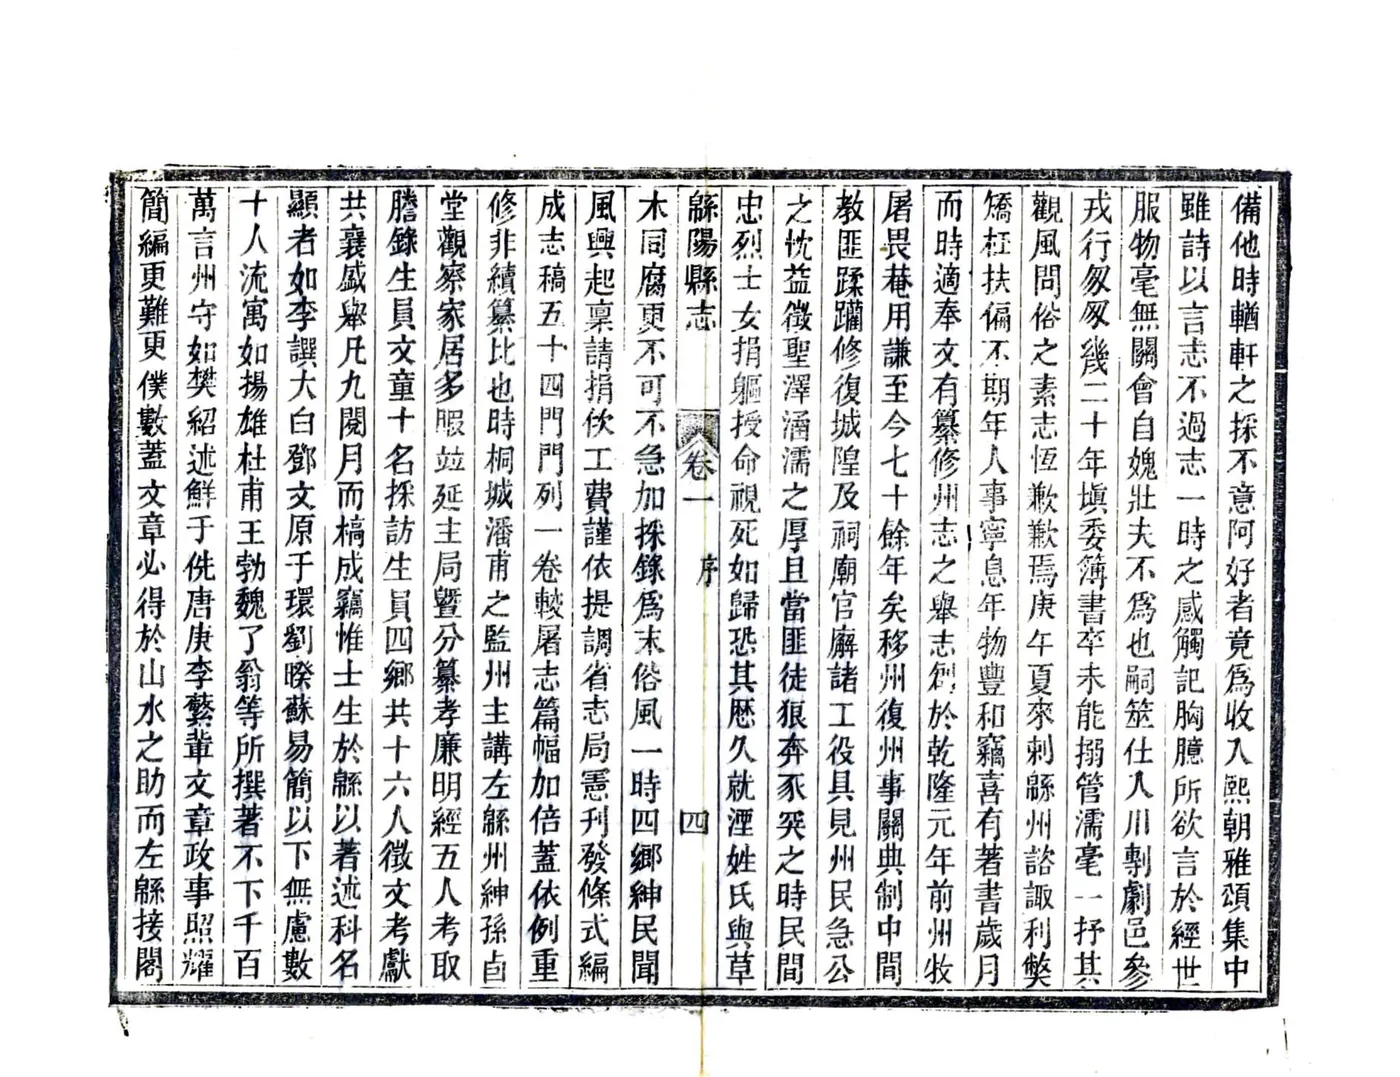 備他時輶軒之採不意阿好者竟為收入熙朝雅頌集中
雖詩以言志不過志一時之感觸記胸臆所欲言於經世
服物毫無關會自媿壯夫不為也嗣筮仕入川剸劇邑參
戎行匆匆幾二十年塡委簿書卒未能搦管濡毫一抒其
觀風問俗之素志恆歉歉焉庚午夏來刺緜州諮諏利弊
矯枉扶偏不期年人事寧息年物豐和竊喜有著書歲月
而時適奉文有纂修州志之舉志創於乾隆元年前州牧
屠畏菴用謙至今七十餘年矣移州復州事關典制中間
教匪蹂躪修復城隍及祠廟官廨諸工役具見州民急公
之忱益徵聖澤涵濡之厚且當匪徒狼奔豕突之時民間
忠烈士女捐軀授命視死如歸恐其歷久就湮姓氏與草
緜陽縣志 卷一 序 四
木同腐更不可不急加採錄為末俗風一時四鄉紳民聞
風興起稟請捐伙工費謹依提調省志局憲刋發條式編
成志稿五十四門門列一卷較屠志篇幅加倍蓋依例重
修非續纂比也時桐城潘甫之監州主講左緜州紳孫卣
堂觀察家居多暇竝延主局曁分纂孝廉明經五人考取
謄錄生員文童十名採訪生員四鄉共十六人徵文考獻
共襄盛舉凡九閱月而槁成竊惟士生於緜以著述科名
顯者如李譔大白鄧文原于環劉暌蘇易簡以下無慮數
十人流寓如揚雄杜甫王勃魏了翁等所撰著不下千百
萬言州守如樊紹述鮮于侁唐庚李蓺輩文章政事照耀
簡編更難更僕數蓋文章必得於山水之助而左緜接閬